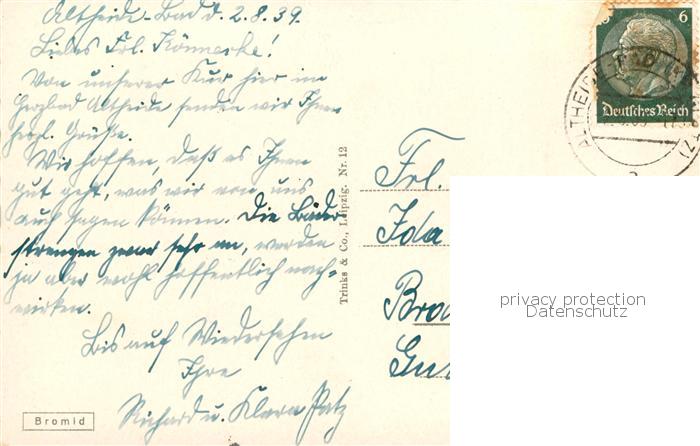 Altheide-Bad d. 2.8.39.
Liebes Frl. Könnecke!
Von unserer Kur hier im
Herzbad Altheide senden wir Ihnen
herzl. Grüße.
Wir hoffen, daß es Ihnen
gut geht, was wir von uns
auch sagen können. Die Bäder
strengen zwar sehr an, werden
ja aber wohl hoffentlich nach-
wirken.
Bis auf Wiedersehen
Ihre
Richard u. Klara Patz
Bromid
Trinks & Co., Leipzig. Nr. 12
6
Deutsches Reich
ALTHEIDE-BAD
Frl.
Ida
privacy protection
Datenschutz